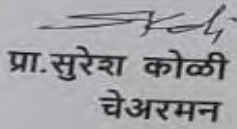 प्रा.सुरेश कोळी
चेअरमन